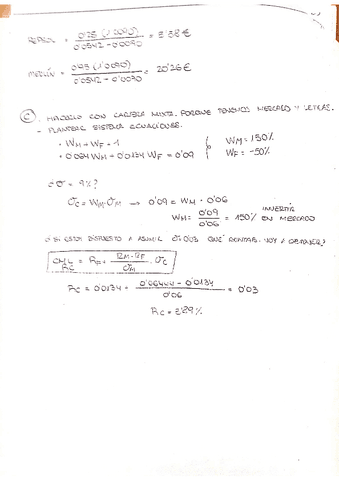 REPSOL = 0'75 (1'0090) / 0'0342 - 0'0090 = 2'38 €
= 0'0342 - 0'0090 = 20'26 €
C. HACERLO CON CARTERA MIXTA. PORQUE TENEMOS MERCADO Y LETRAS.
- PLANTEAR SISTEMA ECUACIONES.
· WM + WF = 1 WM = 150%
WM + 0'0134 WF = 0'09 WF = -50%
d σ = 9%?
σc = WM · σM → 0'09 = WM · 0'06
WM = 0'09 / 0'06 = 150% INVERTIR EN MERCADO
SI ESTOY DISPUESTO A ASUMIR 0'03 QUÉ RENTAB. VOY A OBTENER?
CML RC = RF + RM - RF / σM · σc
RC = 0'0134 + - 0'0134 / 0'06 = 0'03